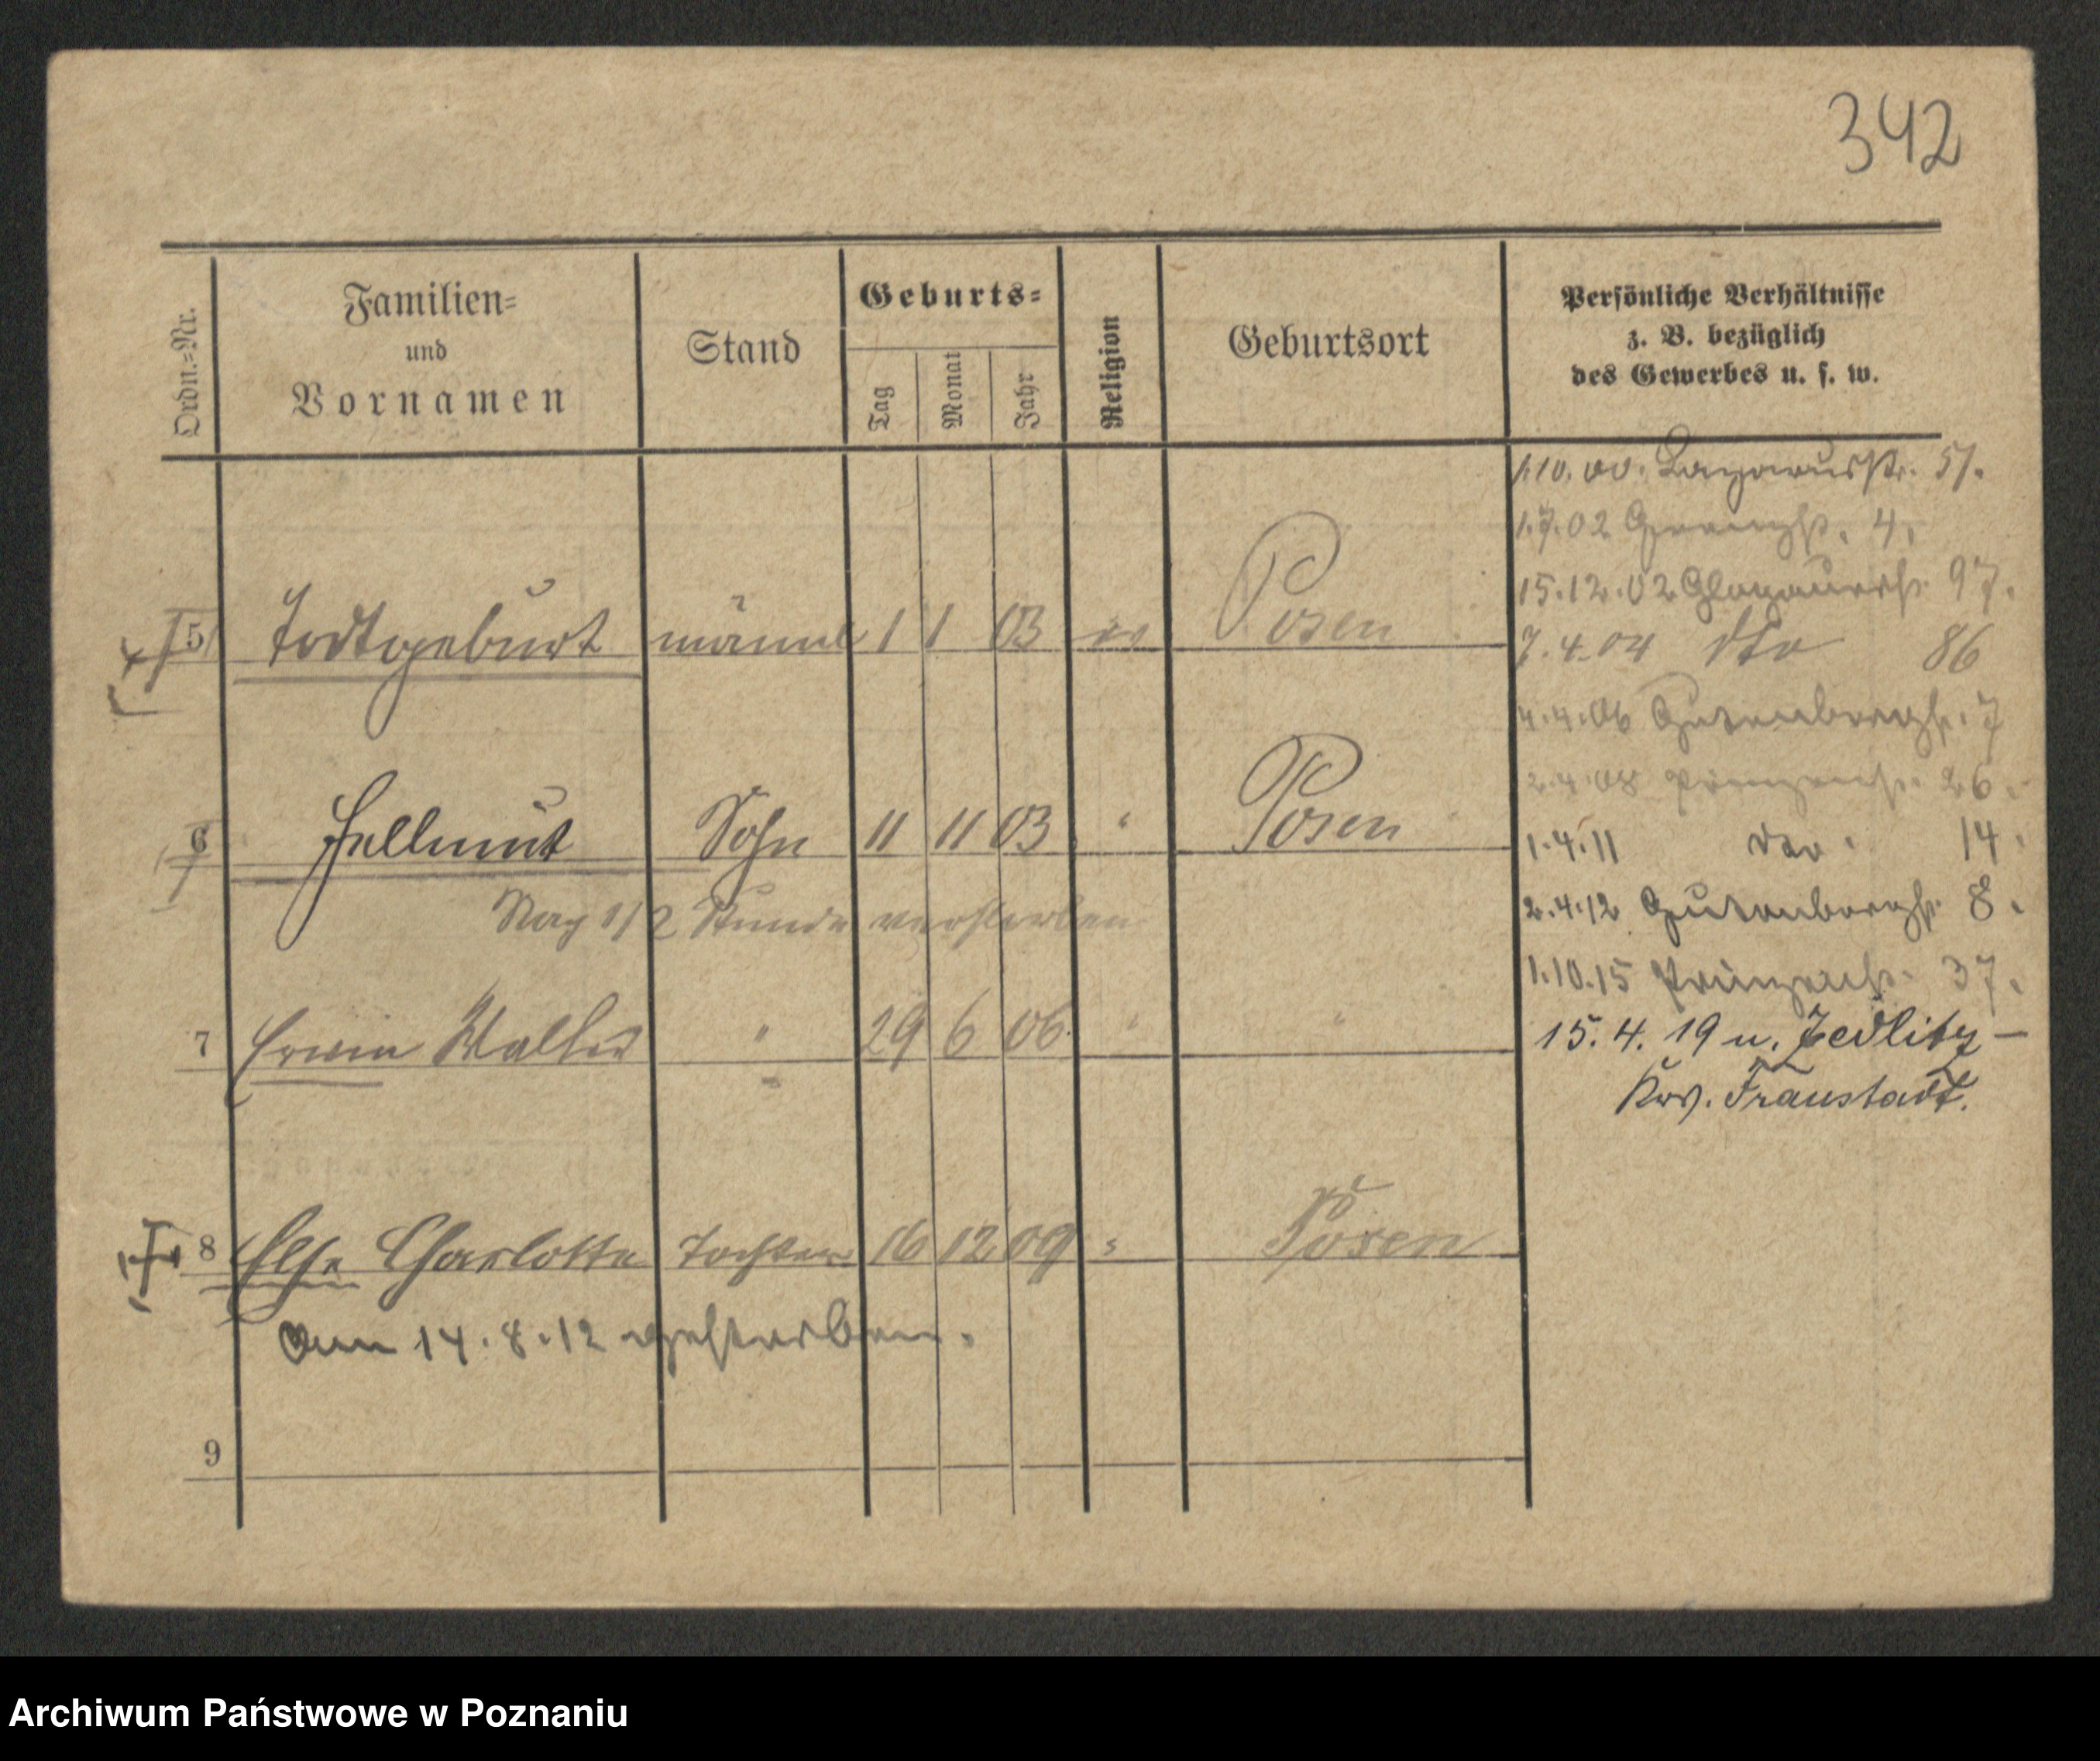 342
Ordn.=Nr.
Familien=
und
Vornamen
Stand
Geburts=
Tag
Monat
Jahr
Religion
Geburtsort
Persönliche Verhältnisse
z. B. bezüglich
des Gewerbes u. s. w.
1.10.00. Lazarusstr. 51.
1.7.02 Grenzstr. 4.
15.12.02 Glogauerstr. 97.
5 Todtgeburt männl 1 1 03 ev Posen
7.4.04 dto 86
4.4.06 Gutenbergstr. 7
2.4.08 Prinzenstr. 26.
6 Hellmut Sohn 11 11 03 " Posen
1.4.11 dto. 14.
Nach 1/2 Stunde verstorben
2.4.12 Gutenbergstr. 8.
1.10.15 Prinzenstr. 37.
7 Erwin Walter " 29 6 06. " "
15.4.19 n. Zedlitz –
Krs. Fraustadt.
8 Else Charlotte Tochter 16 12 09 " Posen
Am 14.8.12 gestorben.
9
Archiwum Państwowe w Poznaniu